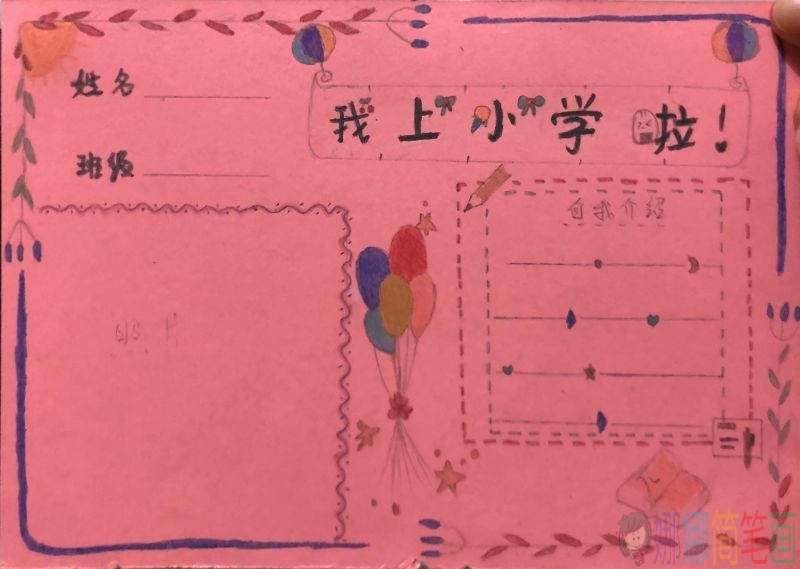 姓名
班级
我上小学啦！
自我介绍
照片
娜娜简笔画